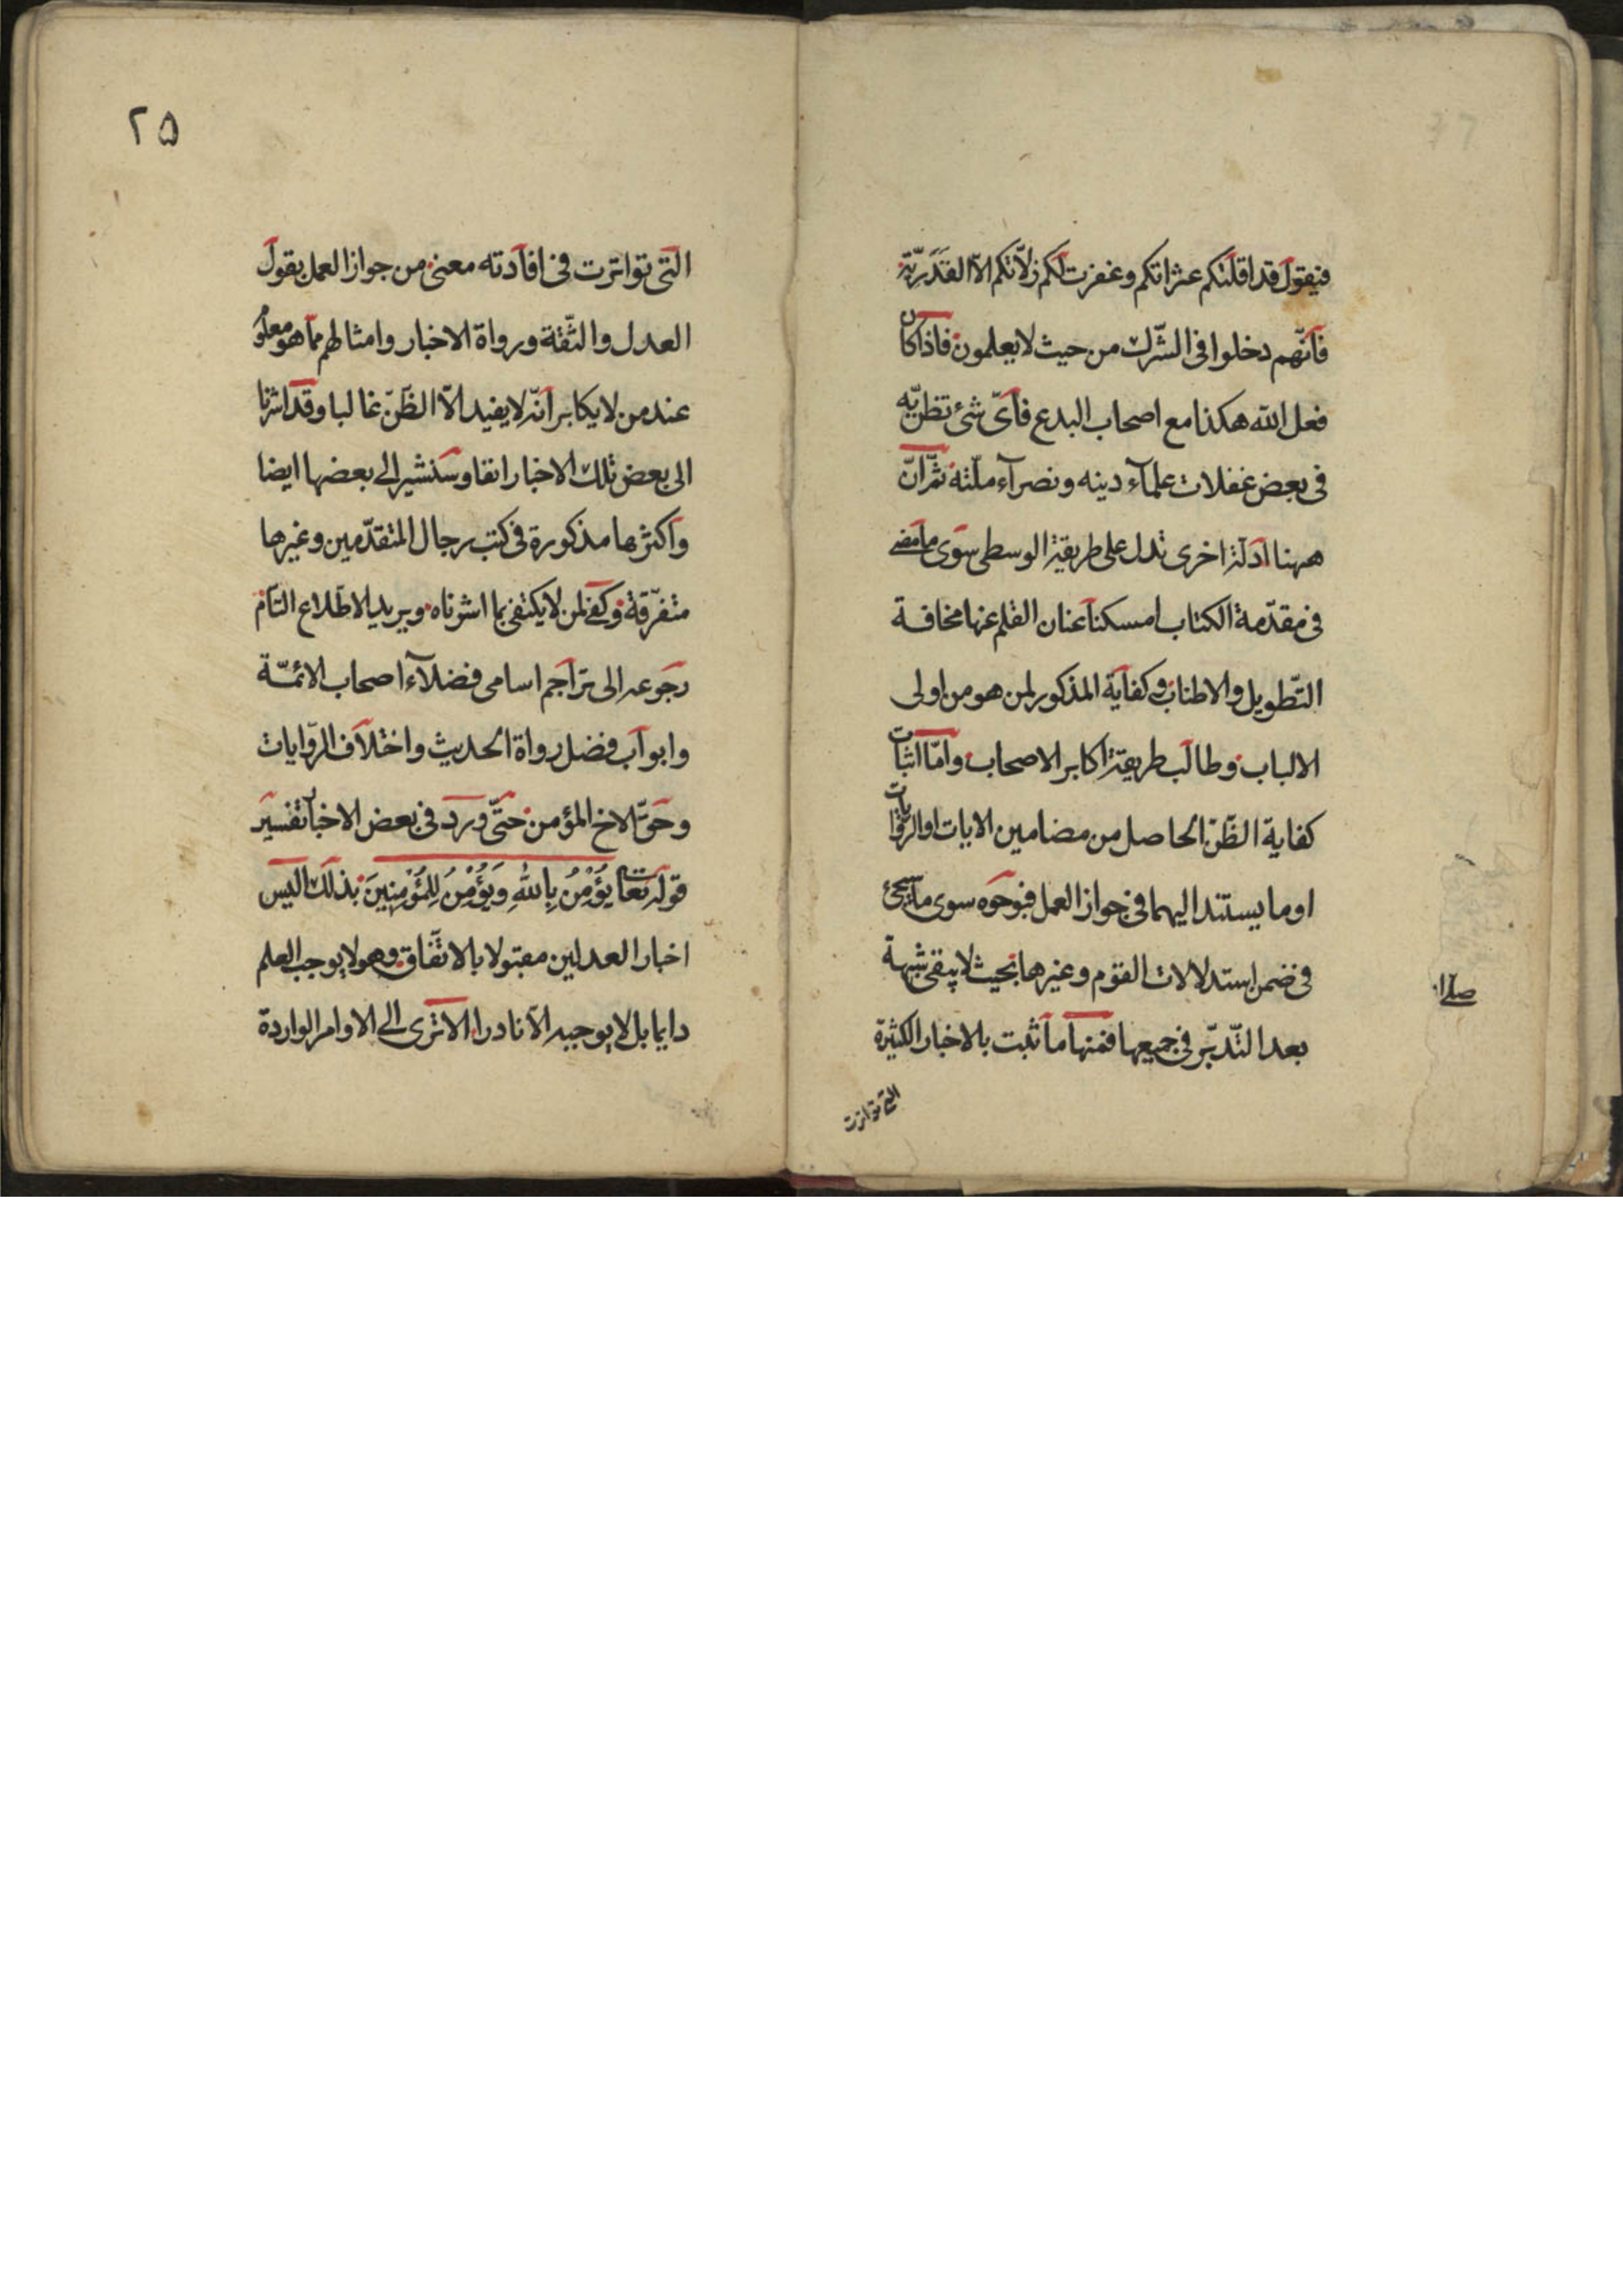 فيقول قد اقلتكم عثراتكم وغفرت لكم زلّاتكم الّا القَدَريّة
فانّهم دخلوا فى الشّرك من حيث لا يعلمون فاذا كان
فعل الله هكذا مع اصحاب البدع فاىّ شئ تظنّ به
فى بعض غفلات علمآء دينه ونصرآء ملّته ثمّ انّ
ههنا ادلّة اخرى تدل على طريقة الوسطى سوى ما مضى
فى مقدّمة الكتاب امسكنا عنان القلم عنها مخافة
التّطويل والاطناب وكفاية المذكور لمن هو من اولى
الالباب وطالب طريقة اكابر الاصحاب وامّا اثبات
كفاية الظّنّ الحاصل من مضامين الايات او الروايات
او ما يستند اليهما فى جواز العمل فبوجوه سوى ما سيجئ
فى ضمن استدلالات القوم وغيرها بحيث لا يبقى شبهة
بعد التّدبّر فى جميعها فمنها ما ثبت بالاخبار الكثيرة
التى تواترت
٢٥
التى تواترت فى افادته معنى من جواز العمل بقول
العدل والثّقة ورواة الاخبار وامثالهم مما هو معلوم
عند من لا يكابر انّه لا يفيد الّا الظّنّ غالبا وقد اشرنا
الى بعض تلك الاخبار انفا وسنشير الى بعضها ايضا
واكثرها مذكورة فى كتب رجال المتقدّمين وغيرها
متفرّقة وكفى لمن لا يكتفى بما اشرناه ويريد الاطّلاع التّام
رجوعه الى تراجم اسامى فضلآء اصحاب الائمّة
وابواب فضل رواة الحديث واختلاف الرّوايات
وحقّ الاخ المؤمن حتّى ورد فى بعض الاخبار تفسير
قوله تعالى يُؤْمِنُ بِاللهِ وَيُؤْمِنُ لِلْمُؤْمِنِينَ بذلك اليس
اخبار العدلين مقبولا بالاتّفاق وهو لا يوجب العلم
دايما بل لا يوجبه الّا نادرا الا ترى الى الاوامر الواردة